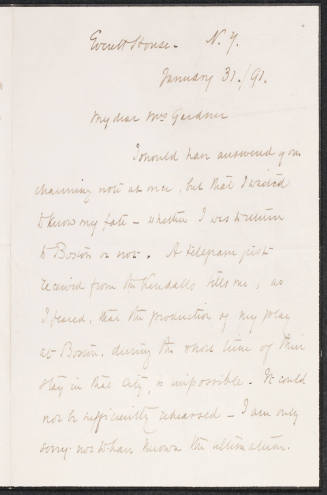 Everett House. N. Y.
January 31./91.
My dear Mrs Gardner
I should have answered your
charming note at once, but that I waited
to know my fate – whether I was to return
to Boston or not. A telegram just
received from the Kendalls tells me, as
I feared, that the production of my play
at Boston, during the short time of their
stay in that city, is impossible. It could
not be sufficiently rehearsed – I am only
sorry not to have known the ultimatum.